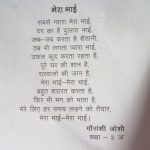 मेरा भाई
सबसे प्यारा मेरा भाई,
घर का है दुलारा भाई,
जब-जब करता है शैतानी,
तब भी लगता प्यारा भाई।
उछल कूद करता रहता है,
पूरे घर की शान है,
घरवालों की जान है,
मेरा भाई-मेरा भाई।
बहुत शरारत करता है,
फिर भी मन को भाता है,
मेरे लिए हर समय लड़ने को तैयार,
मेरा भाई-मेरा भाई।
गौरांशी जोशी
कक्षा - 3 'अ'